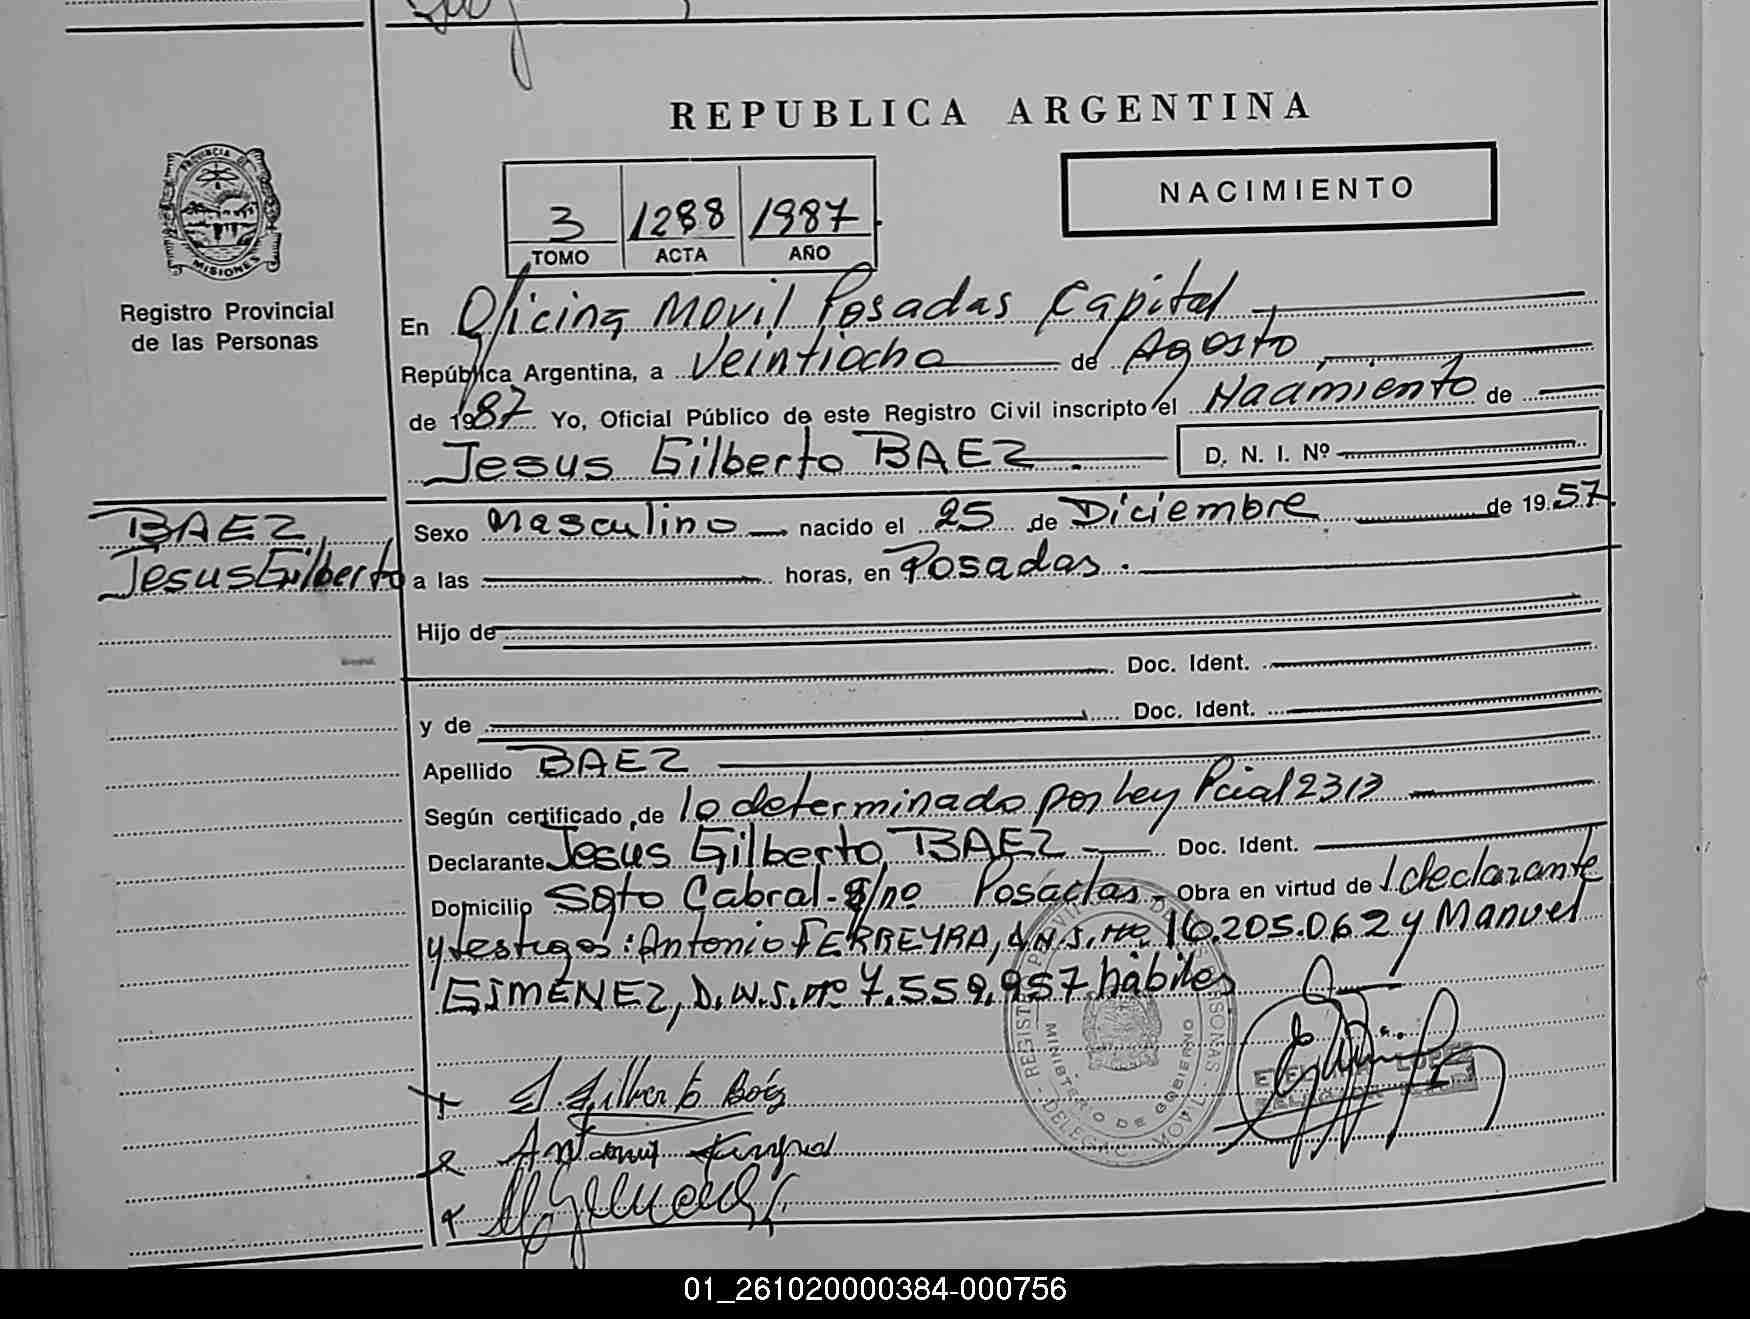 REPUBLICA ARGENTINA
PROVINCIA DE
MISIONES
Registro Provincial
de las Personas
3 1288 1987
TOMO ACTA AÑO
NACIMIENTO
En Oficina Movil Posadas Capital
República Argentina, a Veintiocho de Agosto
de 1987 Yo, Oficial Público de este Registro Civil inscripto el Nacimiento de
Jesus Gilberto BAEZ D. N. I. Nº
BAEZ,
Jesus Gilberto
Sexo Masculino nacido el 25 de Diciembre de 1957.
a las horas, en Posadas.
Hijo de
Doc. Ident.
y de Doc. Ident.
Apellido BAEZ
Según certificado de lo determinado por Ley Pcial 2313
Declarante Jesus Gilberto BAEZ Doc. Ident.
Domicilio Sgto Cabral - s/nº Posadas. Obra en virtud de l. declarante
y testigos: Antonio FERREYRA, D.N.I. Nº 16.205.062 y Manuel
GIMENEZ, D.N.I. Nº 7.559.957 hábiles
J. Gilberto Báez
MINISTERIO DE GOBIERNO
01_261020000384-000756